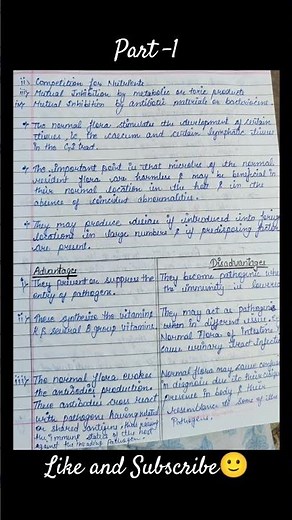 Part-1
ii) Competition for Nutrients
iii) Mutual Inhibition by metabolic or toxic products
iv) Mutual Inhibition by antibiotic materials or bacteriocins.
* The normal flora stimulate the development of certain
tissues, ie, the caecum and certain lymphatic tissues
in the GI tract.
* The important point is that microbes of the normal
resident flora are harmless & may be beneficial in
their normal location in the host & in the
absence of coincident abnormalities.
* They may produce disease if introduced into foreign
locations in large numbers & if predisposing factors
are present.
Advantages
i) They prevent or suppress the
entry of pathogens.
ii) These synthesize the vitamins
K & several B group vitamins
iii) The normal flora evokes
the antibodies production
These antibodies cross react
with pathogens having related
or shared antigens, &
the immune status of the host
against the invading pathogens
Disadvantages
They become pathogenic when
the immunity is
They may act as pathogens
when in different
Normal Flora of Intestine
cause urinary tract infection
Normal flora may cause
in diagnosis due to their
presence in body & their
resemblance to some of the
Pathogens.
Like and Subscribe🙂